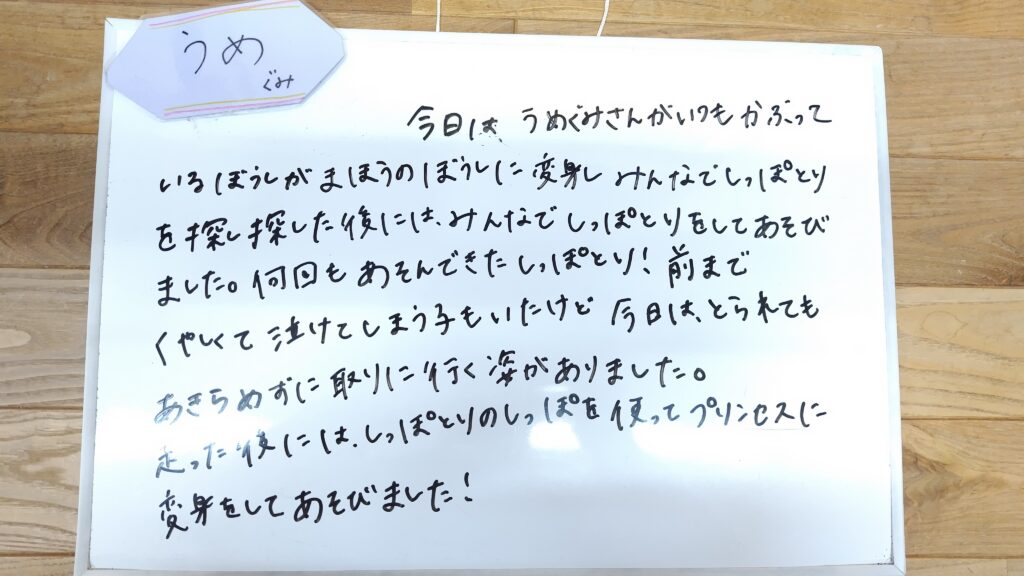 うめ
ぐみ
今日は うめぐみさんがいつもかぶって
いるぼうしがまほうのぼうしに変身し みんなでしっぽとり
を探し探した後には、みんなでしっぽとりをしてあそび
ました。何回もあそんできたしっぽとり!前まで
くやしくて泣けてしまう子もいたけど 今日は、とられても
あきらめずに取りに行く姿がありました。
走った後には、しっぽとりのしっぽを使ってプリンセスに
変身をしてあそびました!